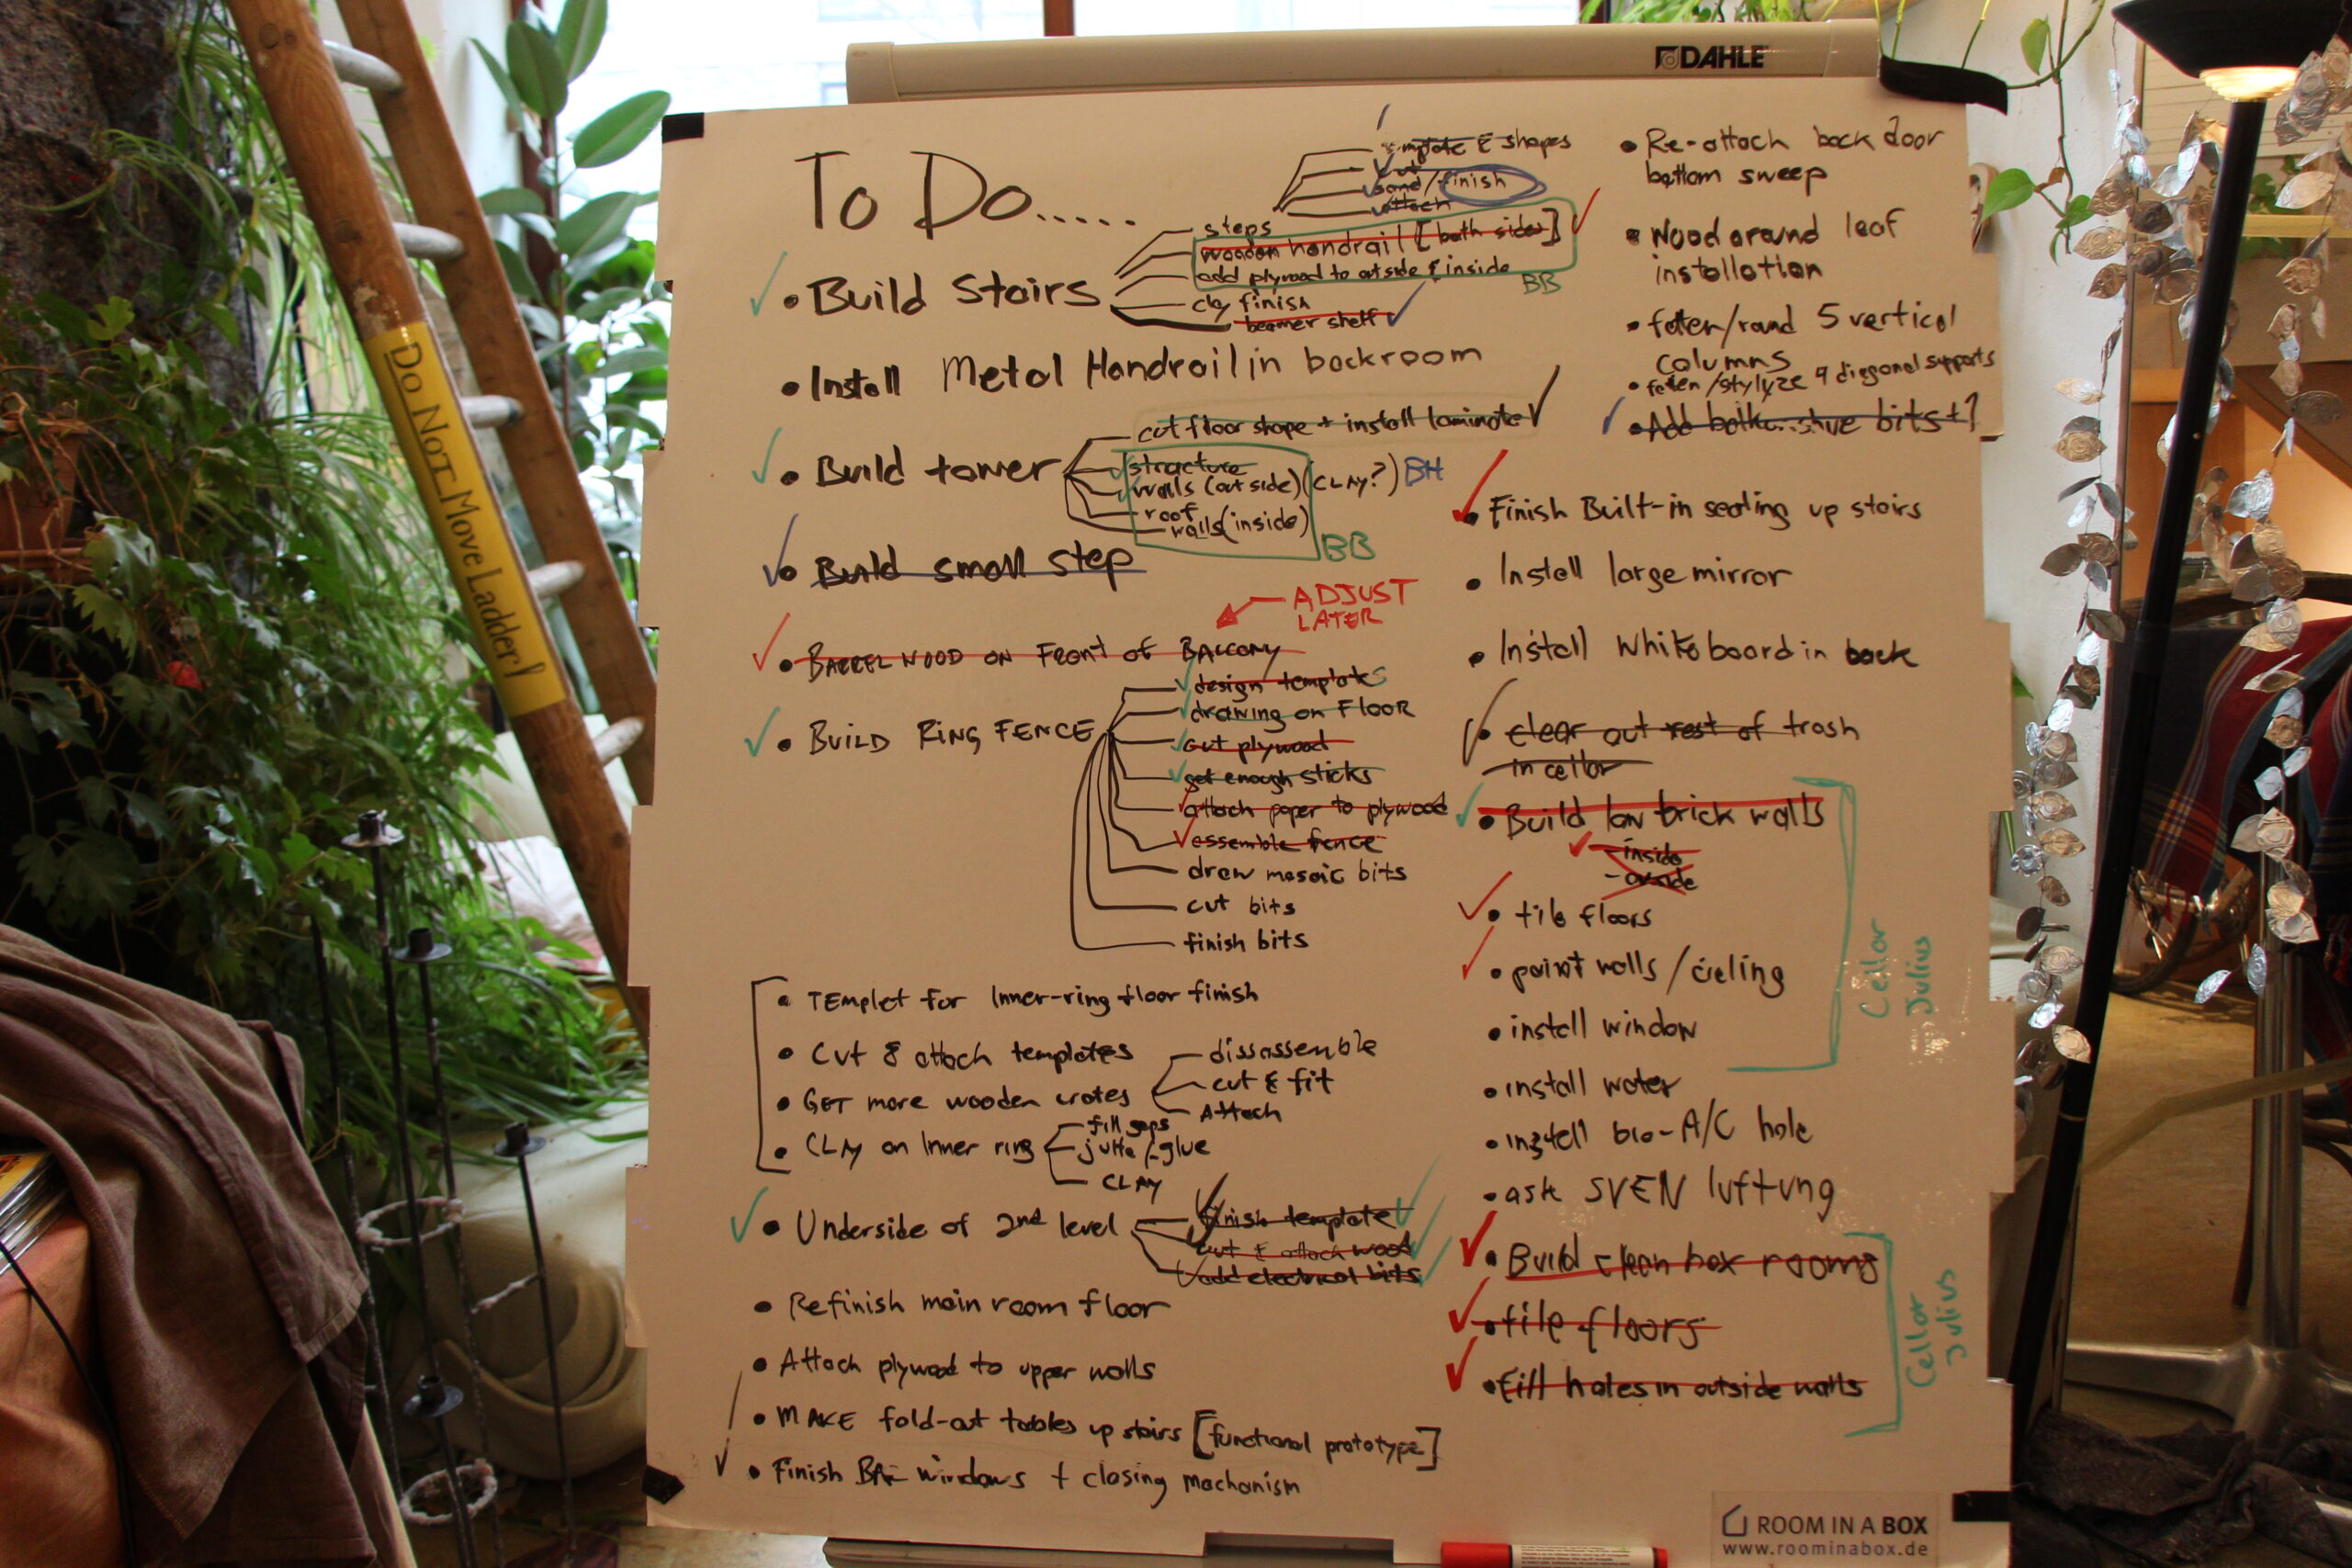 DAHLE
Do NoT Move Ladder!
To Do.....
& shapes
cut
sand/finish
attach
steps
wooden handrail [both sides]
add plywood to outside & inside
BB
clay finish
beamer shelf
• Build Stairs
• Install Metal Handrail in backroom
cut floor shape + install laminate
• Build tower
structure
walls (outside) (CLAY?) BH
roof
walls (inside)
BB
• Build small step
ADJUST
LATER
• BARREL WOOD ON FRONT OF BALCONY
• BUILD RING FENCE
design templates
drawing on FLOOR
cut plywood
get enough sticks
attach paper to plywood
assemble fence
draw mosaic bits
cut bits
finish bits
• TEmplet for Inner-ring floor finish
• Cut & attach templates
• GET more wooden crates
dissassemble
cut & fit
Attach
• CLAY on Inner ring
fill gaps
glue
CLAY
• Underside of 2nd level
finish template
cut & attach wood
add electrical bits
• Refinish main room floor
• Attach plywood to upper walls
• MAKE fold-out tables up stairs [functional prototype]
• Finish windows + closing mechanism
• Re-attach back door
bottom sweep
• Wood around leaf
installation
• 5 vertical
columns
• 9 diagonal supports
• Add bits +1
• Finish Built-in seating up stairs
• Install large mirror
• Install Whiteboard in back
• clear out rest of trash
in cellar
• Build low brick walls
- inside
- outside
• tile floors
• paint walls/cieling
• install window
Cellar
Julius
• install water
• install bio-A/C hole
• ask SVEN luftung
• Build clean box rooms
• tile floors
• Fill holes in outside walls
Cellar
Julius
ROOM IN A BOX
www.roominabox.de